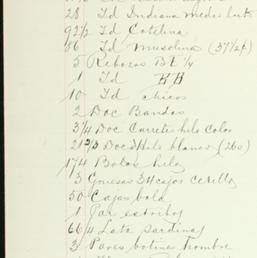 28 Id Indiana medio luto
92½ Id Cotelina
86 Id Muselina (37/2¢)
5 Rebozos B E ¼
1 Id H H
10 Id chicos
2 Doc Bandas
3¾ Doc Carretes hilo color
21⅔ Doc Hilo blanco (260)
174 Bolas hilo
3 Gruesas 34 cajas cerillo
50 Cajas bola
1 Par estribos
66 Lata sardinas
3 Pares botines hombre